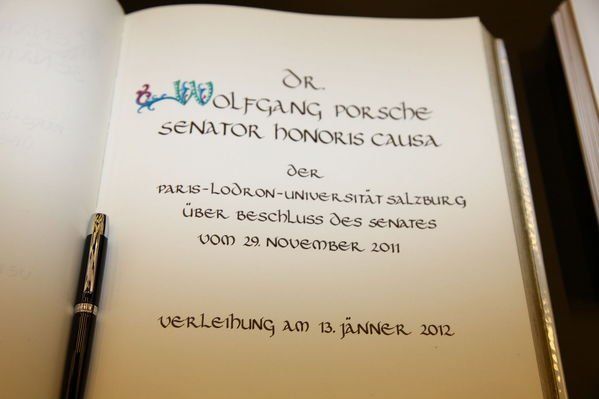 DR.
WOLFGANG PORSCHE
SENATOR HONORIS CAUSA
DER
PARIS-LODRON-UNIVERSITÄT SALZBURG
ÜBER BESCHLUSS DES SENATES
VOM 29. NOVEMBER 2011
VERLEIHUNG AM 13. JÄNNER 2012